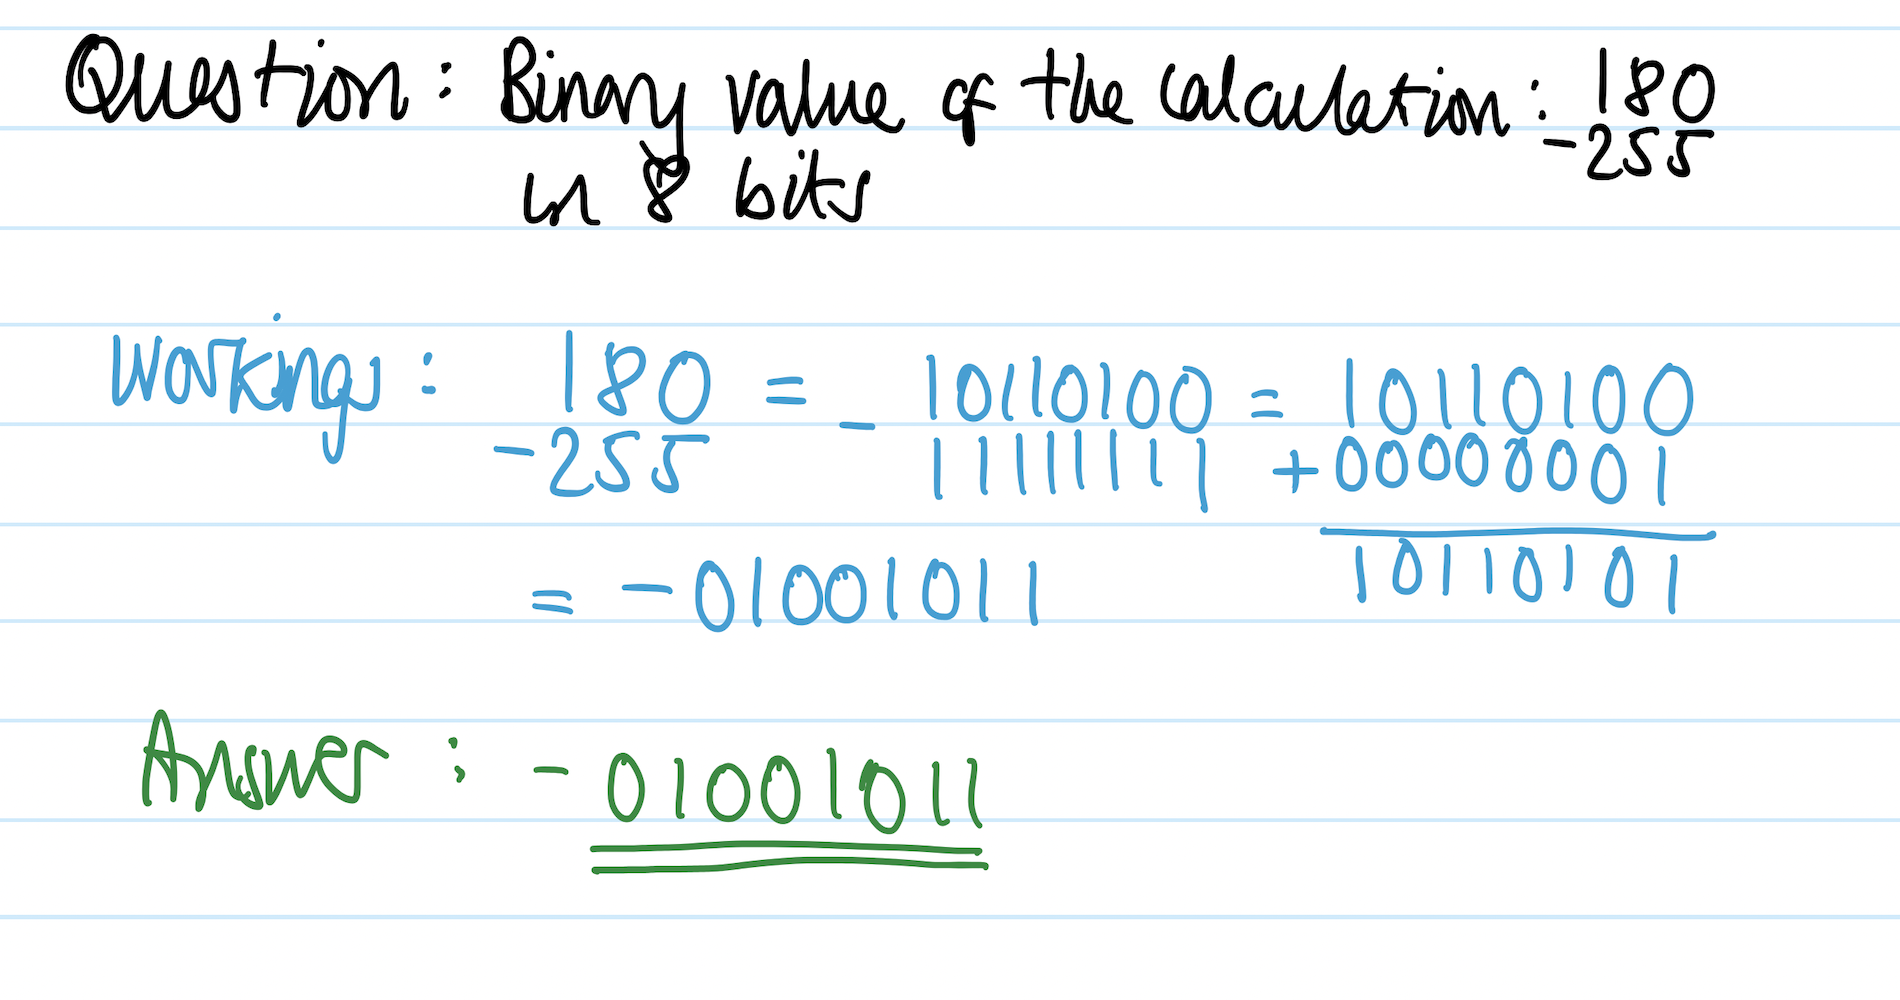 Question: Binary value of the calculation: 180
-255
in 8 bits
Workings: 180 = 10110100 = 10110100
-255 - 11111111 +00000001
10110101
= -01001011
Answer: -01001011